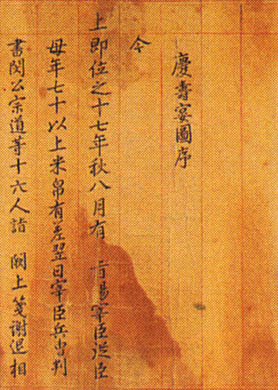 慶壽宴圖序
今
上即位之十七年秋八月有 旨昜宰臣從臣
母年七十以上米帛有差翌日宰臣兵曹判
書閔公宗道等十六人詣 闕上箋謝退相